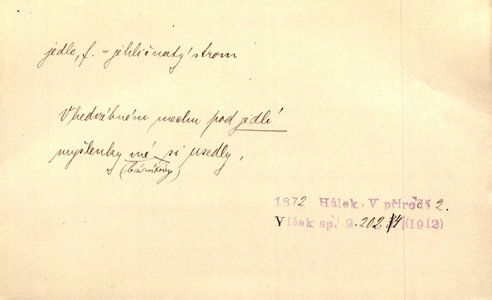 jedle, f. - jehličnatý strom
V hedvábném mechu pod jedlí
myšlenky mé si usedly,
(básníkovy)
1872 Hálek, V přírodě 2.
Vlček sp. 9. 202 (1912)